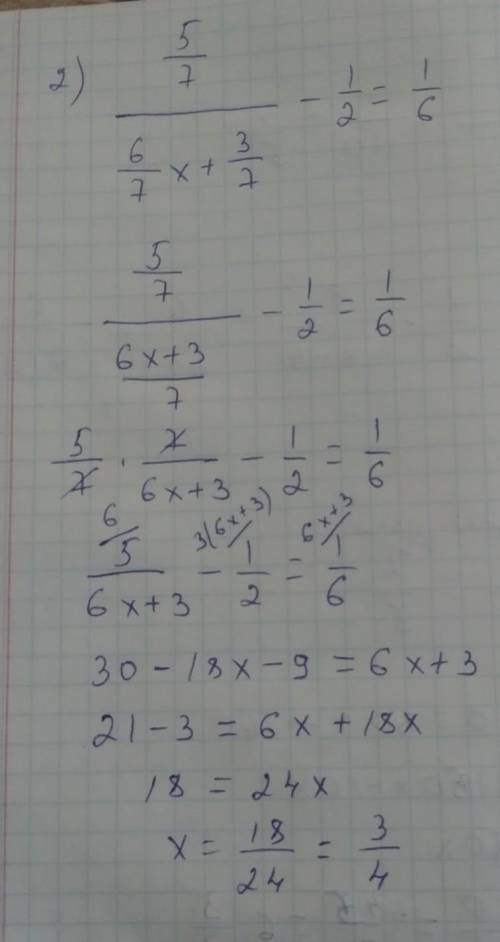 2) (5/7)/(6/7 x + 3/7) - 1/2 = 1/6
(5/7)/((6x+3)/7) - 1/2 = 1/6
5/7 · 7/(6x+3) - 1/2 = 1/6
6/ 3(6x+3)/ 6x+3/
5/(6x+3) - 1/2 = 1/6
30 - 18x - 9 = 6x + 3
21 - 3 = 6x + 18x
18 = 24x
x = 18/24 = 3/4